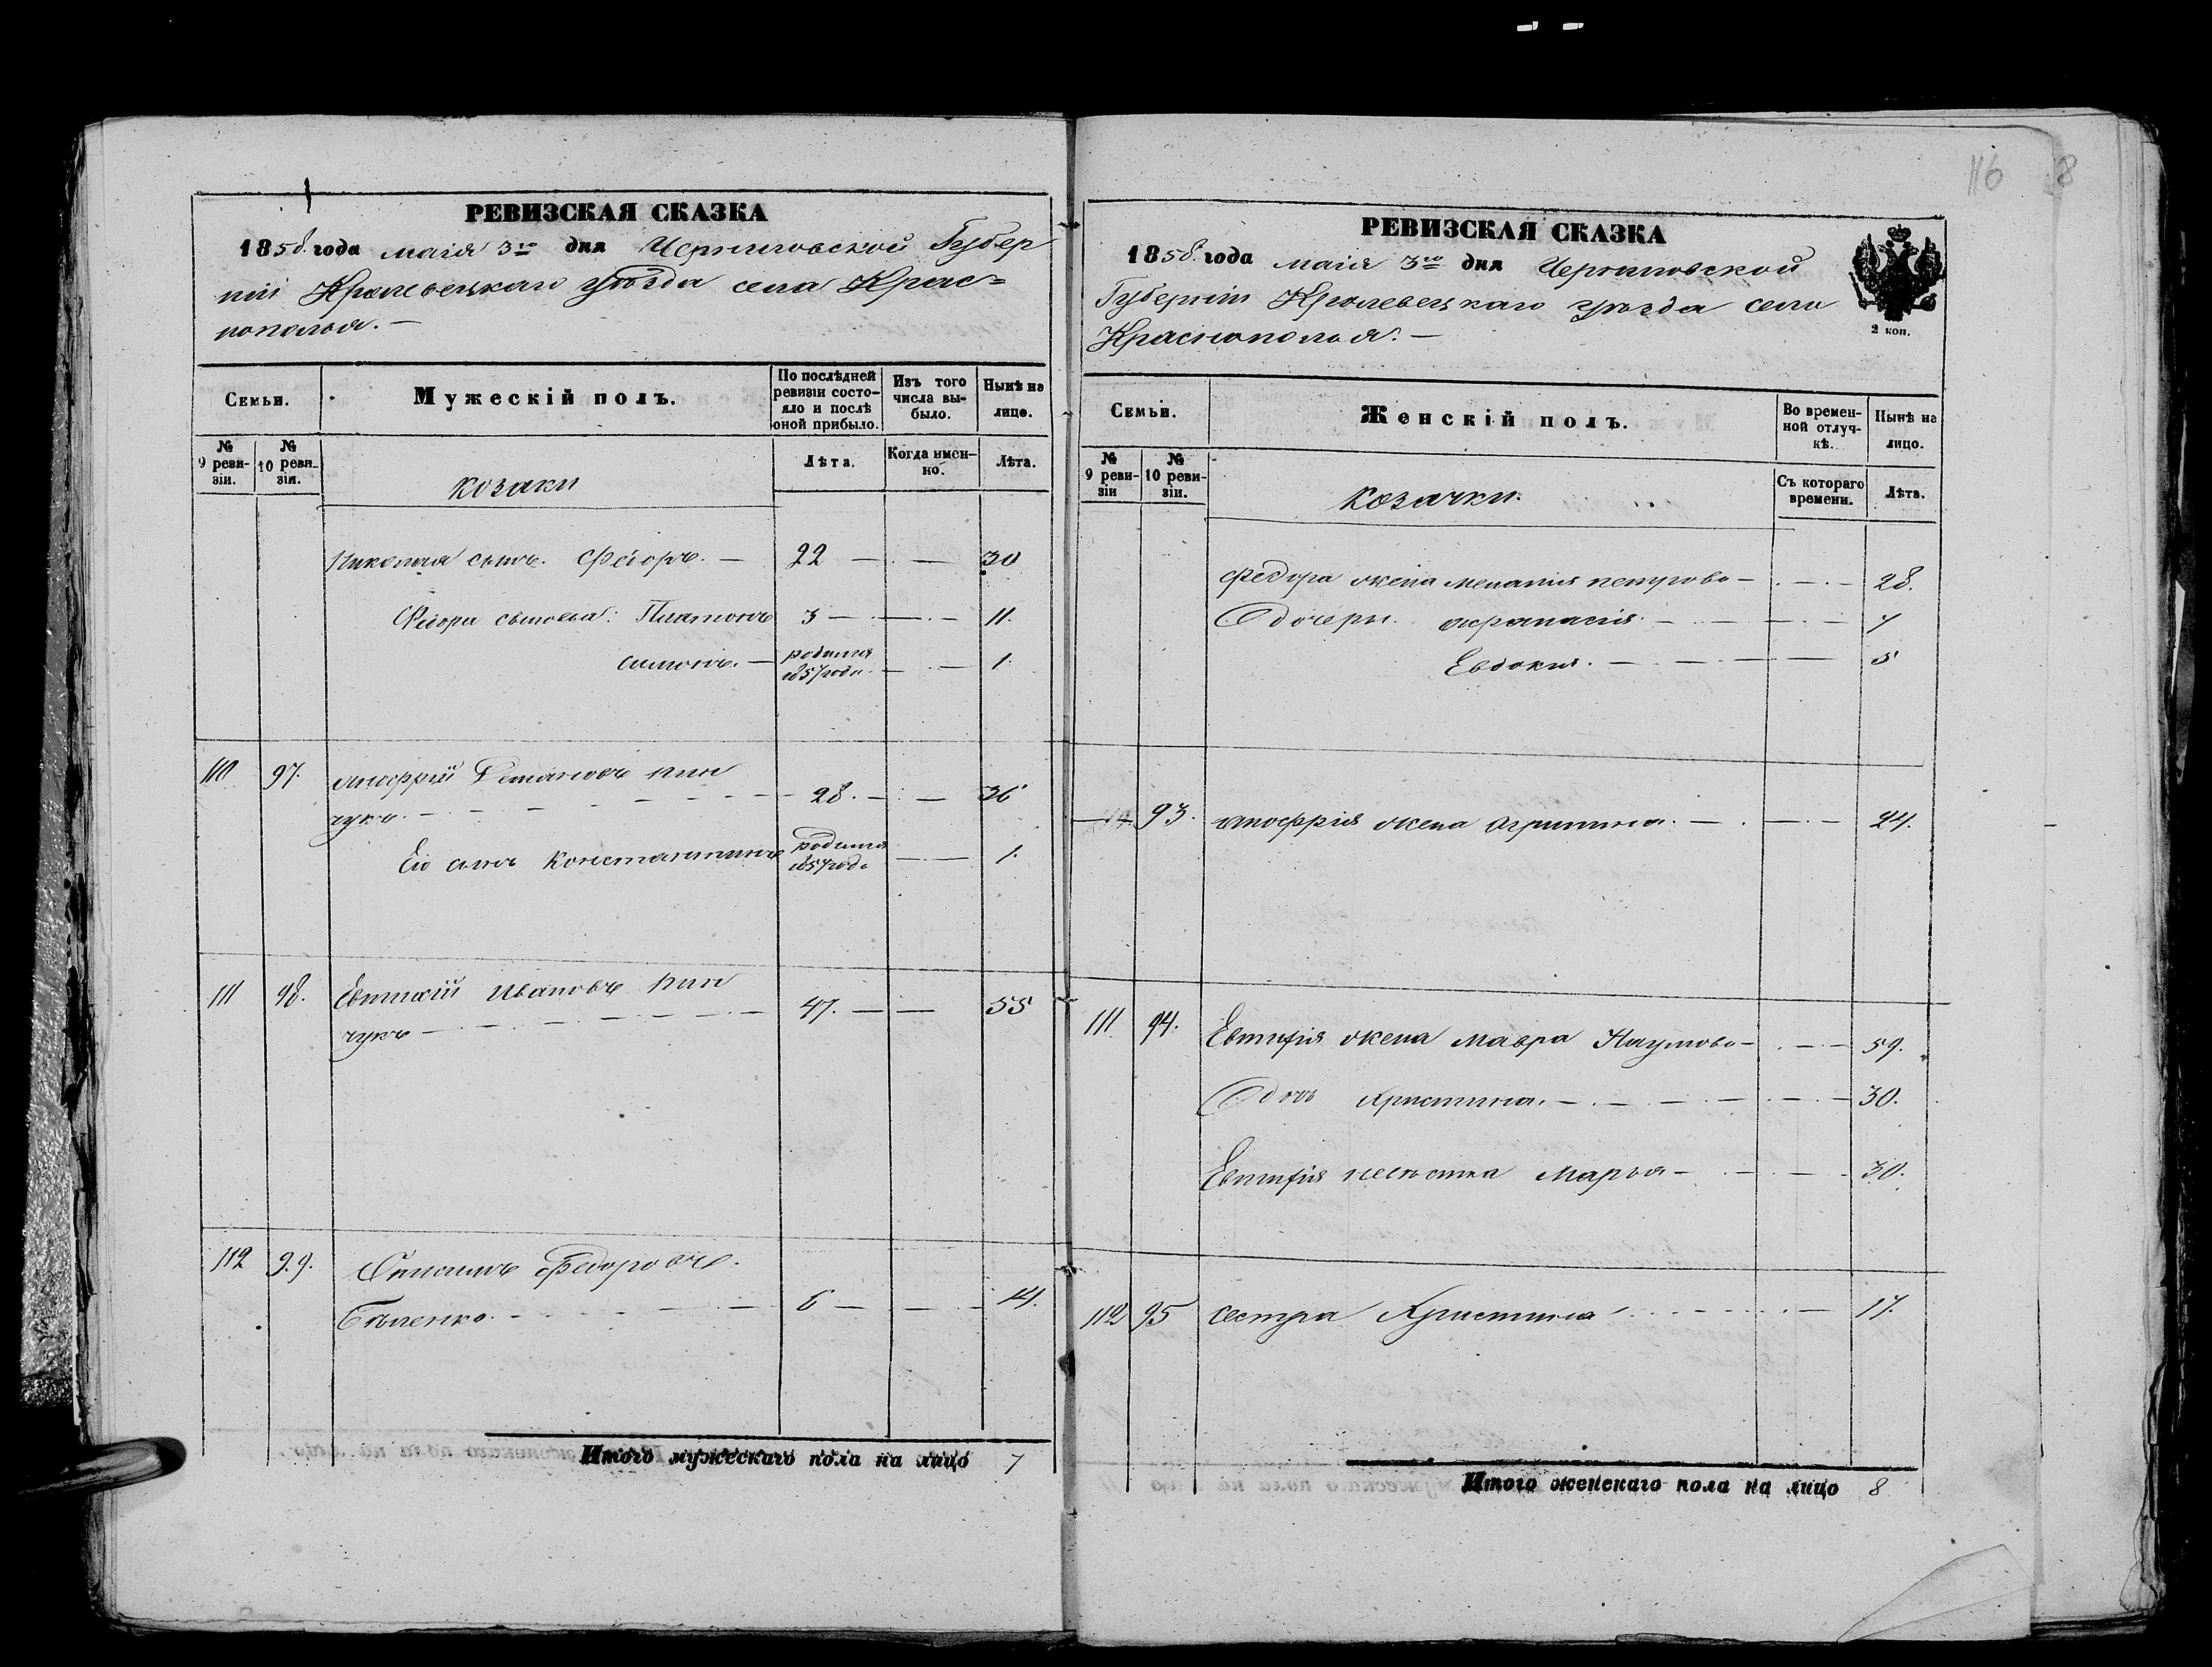 116 8
РЕВИЗСКАЯ СКАЗКА
1858 года маія 3го дня Черниговской Губер
ніи Кролевецкаго уѣзда села Крас=
нополья. —
Семьи.
Мужескій полъ.
По послѣдней ревизіи состо-яло и послѣ оной прибыло.
Изъ того числа вы-было.
Нынѣ на лицо.
№ 9 реви-зіи.
№ 10 реви-зіи.
козаки
Лѣта.
Когда имен-но.
Лѣта.
Николая сынъ. Федоръ. — 22 — — 30
Федора сыновья: Платонъ 3 — — 11.
Симонъ. — родился 1857 года. — — 1.
110 97. Анофрій Демяновъ Пин
чукъ. — 28. — — 36
Его сынъ Константинъ родился 1857 года — — 1.
111 98. Евтихій Ивановъ Пин
чукъ — 47. — — 55
112 99. Федоровъ.
Бѣленко. — 6 — — 14.
Итого мужескаго пола на лицо 7
РЕВИЗСКАЯ СКАЗКА
1858 года маія 3го дня Черниговской
Губерніи Кролевецкаго уѣзда села
Краснополья. —
2 коп.
Семьи.
Женскій полъ.
Во времен-ной отлуч-кѣ.
Нынѣ на лицо.
№ 9 реви-зіи
№ 10 реви-зіи.
козачки.
Съ котораго времени.
Лѣта.
Федора жена Меланія Петрова — — 28.
дочери — — 7
Евдокія. — — 5
93. Анофрія жена Агрипина. — — 24.
111 94. Евтифія жена Мавра Наумова — — 59.
дочь Христина. — — 30.
Евтифія невѣстка Марья — — 30.
112 95 сестра Христина — 17.
Итого женскаго пола на лицо 8